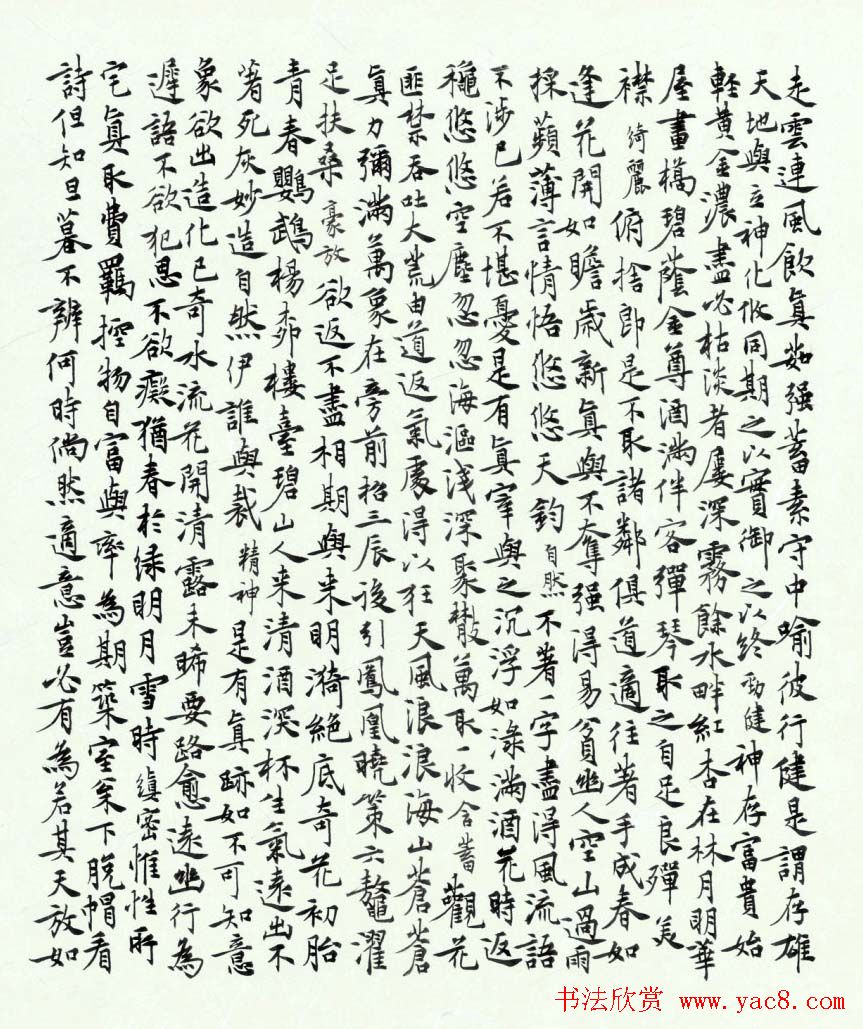 走雲連風飲眞茹强蓄素守中喻彼行健是謂存雄
天地與立神化攸同期之以實御之以終 勁健 神存富貴始
輕黄金濃盡必枯淡者屢深霧餘水畔紅杏在林月明華
屋畫橋碧蔭金尊酒滿伴客彈琴取之自足良殫美
襟 綺麗 俯捨即是不取諸鄰俱道適往著手成春如
逢花開如瞻歲新眞與不奪强得易貧幽人空山過雨
採蘋薄言情悟悠悠天鈞 自然 不著一字盡得風流語
不涉已若不堪憂是有眞宰與之沉浮如渌滿酒花時返
穐悠悠空塵忽忽海漚淺深聚散萬取一收 含蓄 觀花
匪禁吞吐大荒由道返氣處得以狂天風浪浪海山蒼蒼
眞力彌滿萬象在旁前招三辰後引鳳凰曉策六鰲濯
足扶桑 豪放 欲返不盡相期與来明漪絶底奇花初胎
青春鸚鵡楊柳樓臺碧山人来清酒深杯生氣遠出不
著死灰妙造自然伊誰與裁 精神 是有眞跡如不可知意
象欲出造化已奇水流花開清露未晞要路愈遠幽行為
遲語不欲犯思不欲癡猶春於绿明月雪時 縝密 惟性所
宅眞取費羈控物自富與率為期築室案下脱帽看
詩但知旦暮不辨何時倘然適意豈必有為若其天放如
书法欣赏 www.yac8.com